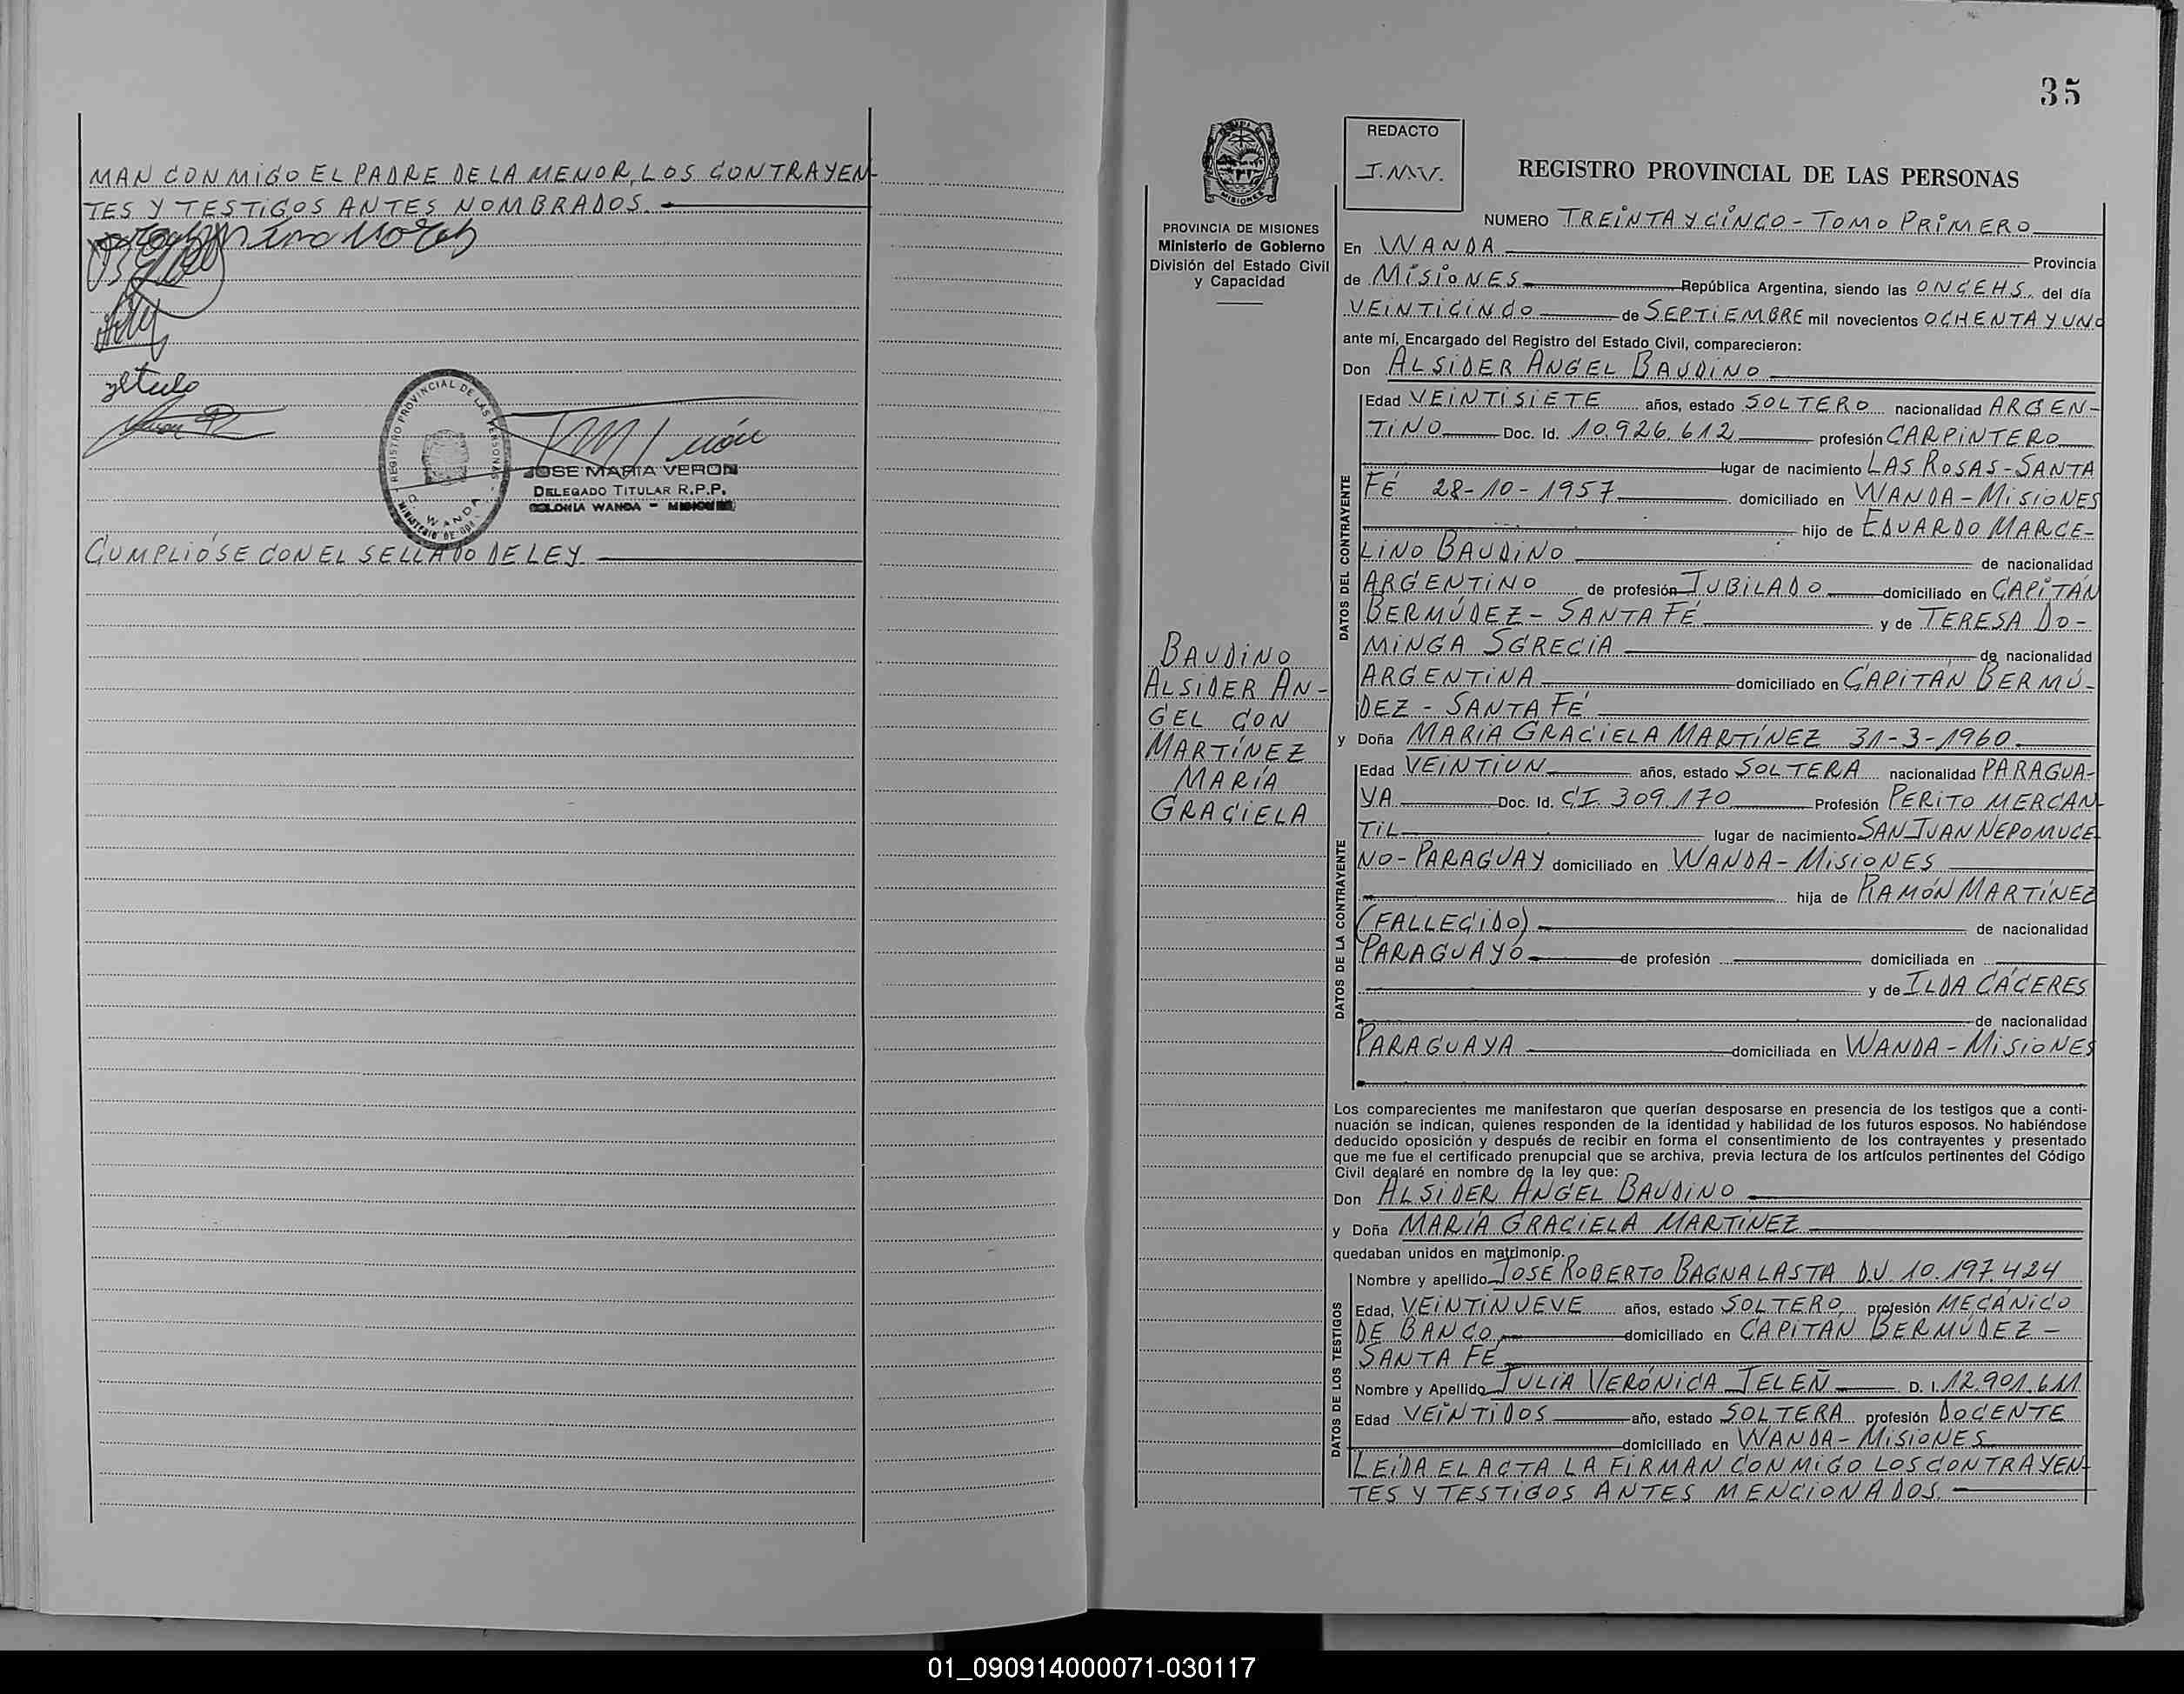 MAN CONMIGO EL PADRE DE LA MENOR, LOS CONTRAYEN-
TES Y TESTIGOS ANTES NOMBRADOS.
REGISTRO PROVINCIAL DE LAS PERSONAS
WANDA
JOSE MARIA VERON
DELEGADO TITULAR R.P.P.
COLONIA WANDA - MISIONES
CUMPLIÓSE CON EL SELLADO DE LEY.
35
MISIONES
PROVINCIA DE MISIONES
Ministerio de Gobierno
División del Estado Civil
y Capacidad
BAUDINO
ALSIDER AN-
GEL CON
MARTÍNEZ
MARÍA
GRACIELA
REDACTO
REGISTRO PROVINCIAL DE LAS PERSONAS
NUMERO TREINTA Y CINCO - TOMO PRIMERO
En WANDA Provincia
de MISIONES República Argentina, siendo las ONCE HS. del día
VEINTICINCO de SEPTIEMBRE mil novecientos OCHENTA Y UNO
ante mí, Encargado del Registro del Estado Civil, comparecieron:
Don ALSIDER ANGEL BAUDINO
DATOS DEL CONTRAYENTE
Edad VEINTISIETE años, estado SOLTERO nacionalidad ARGEN-
TINO Doc. Id. 10.926.612 profesión CARPINTERO
lugar de nacimiento LAS ROSAS-SANTA
FÉ 28-10-1957 domiciliado en WANDA-MISIONES
hijo de EDUARDO MARCE-
LINO BAUDINO de nacionalidad
ARGENTINO de profesión JUBILADO domiciliado en CAPITÁN
BERMÚDEZ-SANTA FÉ y de TERESA DO-
MINGA SGRECIA de nacionalidad
ARGENTINA domiciliado en CAPITÁN BERMÚ-
DEZ - SANTA FÉ
y Doña MARIA GRACIELA MARTÍNEZ 31-3-1960.
DATOS DE LA CONTRAYENTE
Edad VEINTIUN años, estado SOLTERA nacionalidad PARAGUA-
YA Doc. Id. CI. 309.170 Profesión PERITO MERCAN-
TIL lugar de nacimiento SAN JUAN NEPOMUCE-
NO-PARAGUAY domiciliado en WANDA-MISIONES
hija de RAMÓN MARTÍNEZ
(FALLECIDO) de nacionalidad
PARAGUAYO de profesión domiciliada en
y de ILDA CÁCERES
de nacionalidad
PARAGUAYA domiciliada en WANDA-MISIONES
Los comparecientes me manifestaron que querían desposarse en presencia de los testigos que a conti-
nuación se indican, quienes responden de la identidad y habilidad de los futuros esposos. No habiéndose
deducido oposición y después de recibir en forma el consentimiento de los contrayentes y presentado
que me fue el certificado prenupcial que se archiva, previa lectura de los artículos pertinentes del Código
Civil declaré en nombre de la ley que:
Don ALSIDER ANGEL BAUDINO
y Doña MARÍA GRACIELA MARTÍNEZ
quedaban unidos en matrimonio.
DATOS DE LOS TESTIGOS
Nombre y apellido JOSÉ ROBERTO BAGNALASTA D.U. 10.197.424
Edad, VEINTINUEVE años, estado SOLTERO profesión MECÁNICO
DE BANCO domiciliado en CAPITÁN BERMÚDEZ-
SANTA FÉ
Nombre y Apellido JULIA VERÓNICA JELEÑ D. I. 12.901.611
Edad VEINTIDOS año, estado SOLTERA profesión DOCENTE
domiciliado en WANDA-MISIONES
LEÍDA EL ACTA LA FIRMAN CONMIGO LOS CONTRAYEN-
TES Y TESTIGOS ANTES MENCIONADOS.
01_090914000071-030117